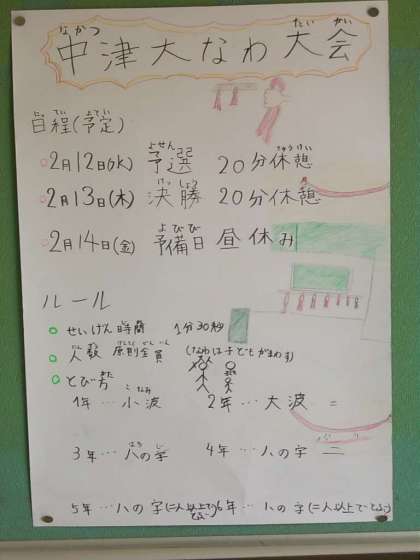 なかつ たい かい
中津大なわ大会
にっ てい よ てい
日程(予定)
よせん
○2月12日(水) 予選 20分休憩
けっ しょう きゅうけい
○2月13日(木) 決勝 20分休憩
よびび
○2月14日(金) 予備日 昼休み
ルール
○せいげん時間 1分30秒
○人数 原則全員 (なわは子どもがまわす)
○とび方
こなみ
1年…小波 2年…大波
はち じ
3年…八の字 4年…八の字
5年…八の字(二人以上でとぶ) 6年…八の字(二人以上でとぶ)